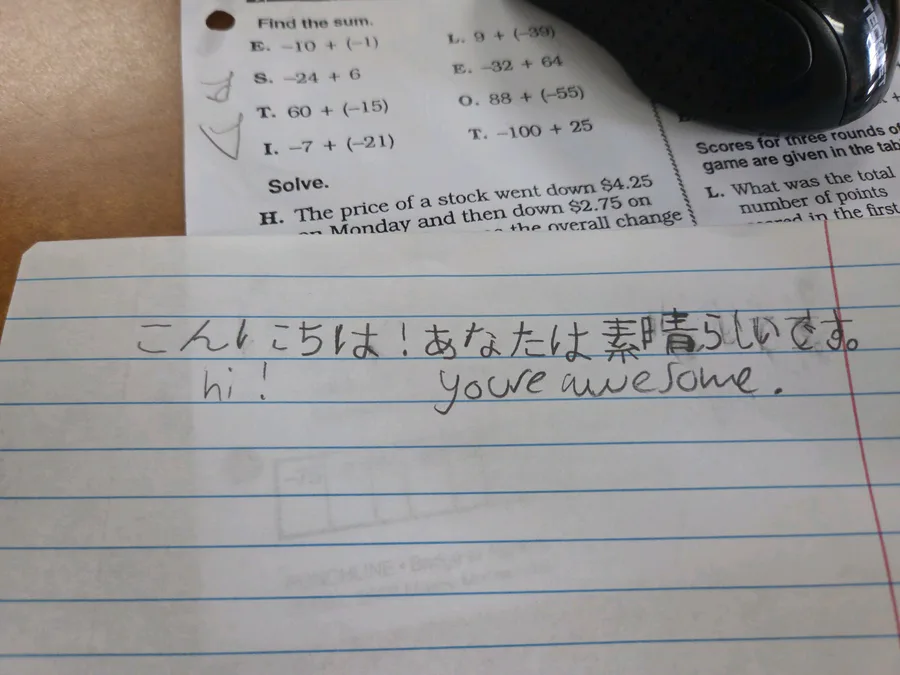 Find the sum.
E. −10 + (−1)
S. −24 + 6
T. 60 + (−15)
I. −7 + (−21)
L. 9 + (−39)
E. −32 + 64
O. 88 + (−55)
T. −100 + 25
Solve.
H. The price of a stock went down $4.25
on Monday and then down $2.75 on
the overall change
Scores for three rounds of
game are given in the tab
L. What was the total
number of points
in the first
こんにちは!あなたは素晴らしいです。
hi! you're awesome.